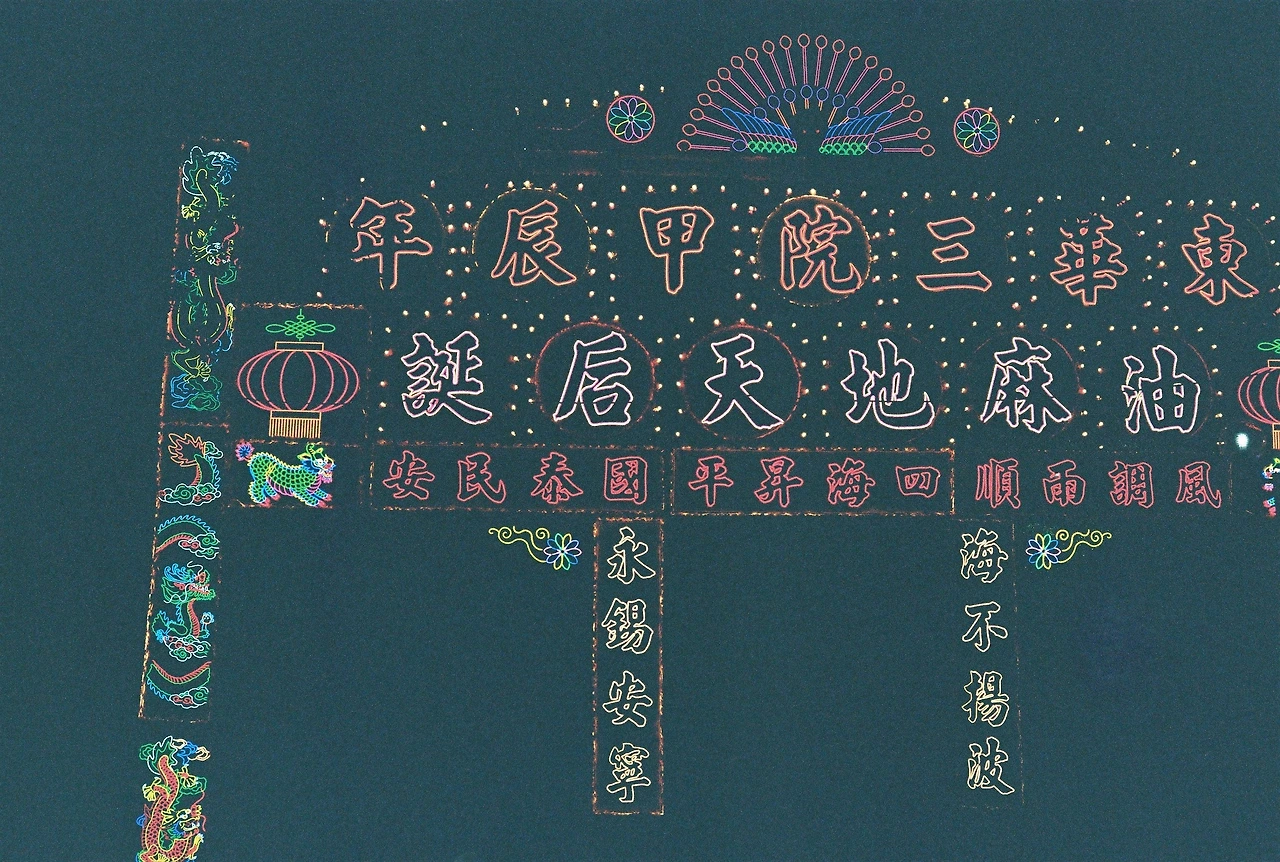 東華三院甲辰年
油麻地天后誕
風調雨順 四海昇平 國泰民安
海不揚波
永錫安寧